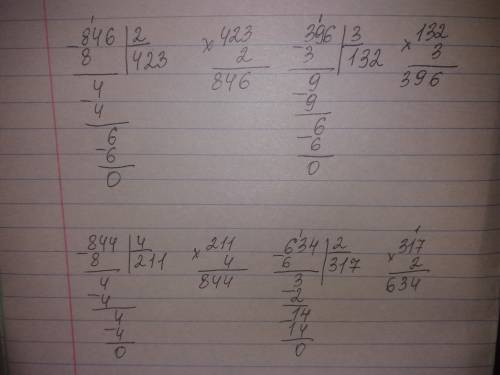 846 | 2
8 | 423
4
-4
6
-6
0
× 423
2
846
-396 | 3
3 | 132
9
-9
6
-6
0
× 132
3
396
-844 | 4
8 | 211
4
-4
4
-4
0
× 211
4
844
-634 | 2
6 | 317
3
-2
14
-14
0
1
× 317
2
634